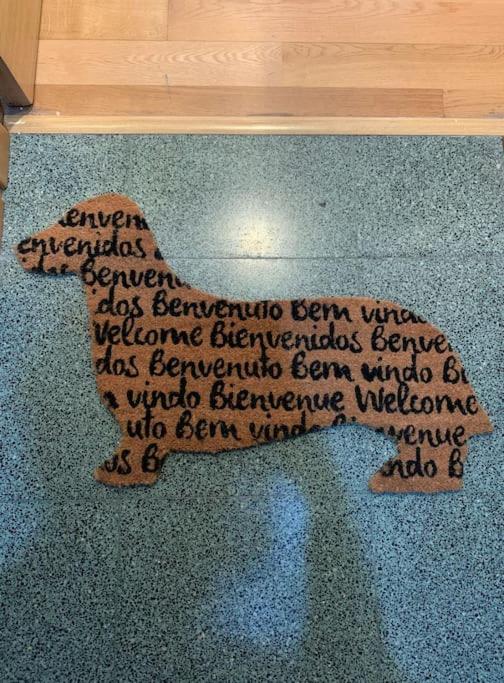 envenu
envenidos
Benvenu
dos Benvenuto Bem vindo
Welcome Bienvenidos Benve
dos Benvenuto Bem vindo Bi
vindo Bienvenue Welcome
uto Bem vindo venue
os B indo B